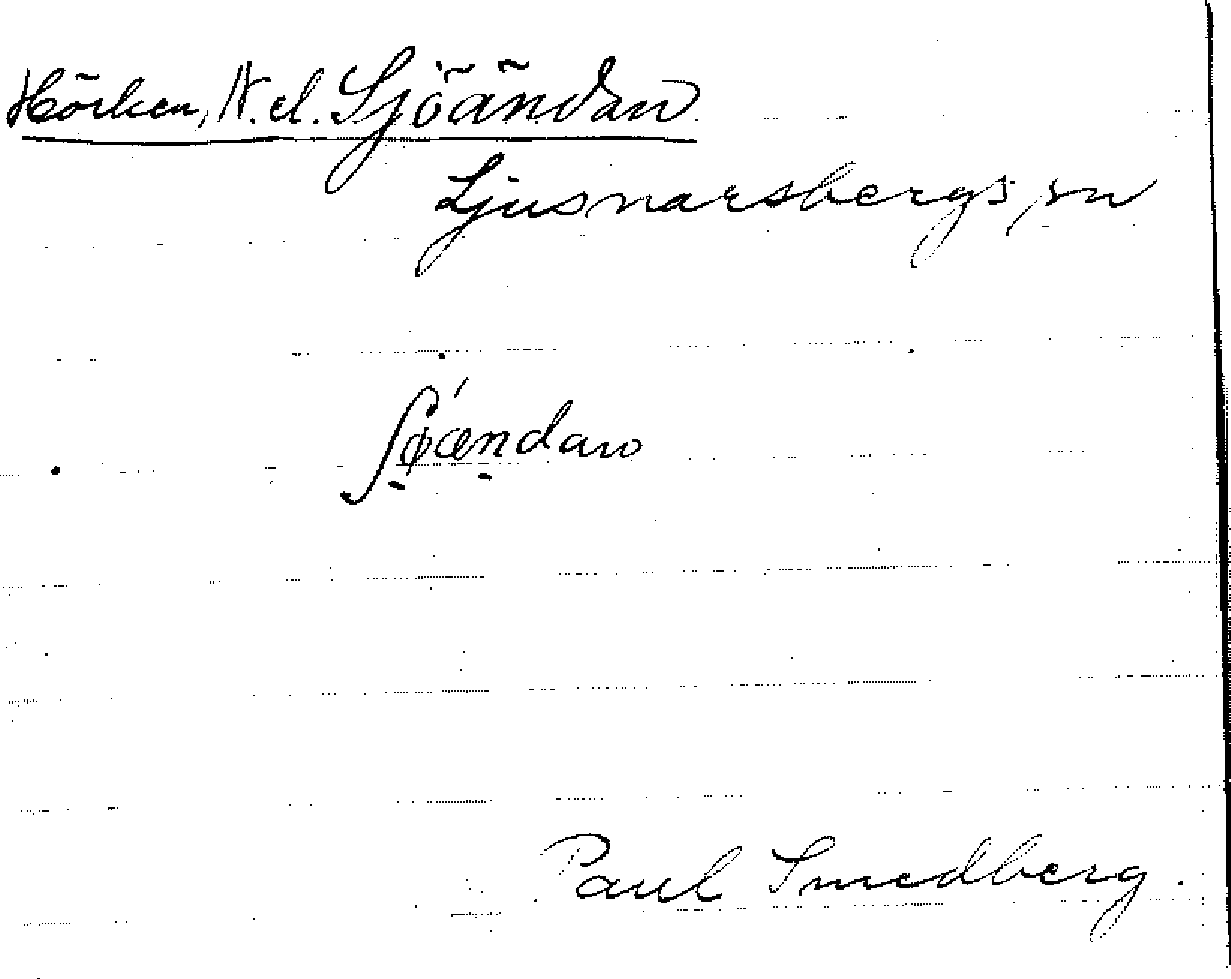 Hörken, N. el. Sjöändan
Ljusnarsbergs sn
ʃø̱´æṉdan
Paul Smedberg.